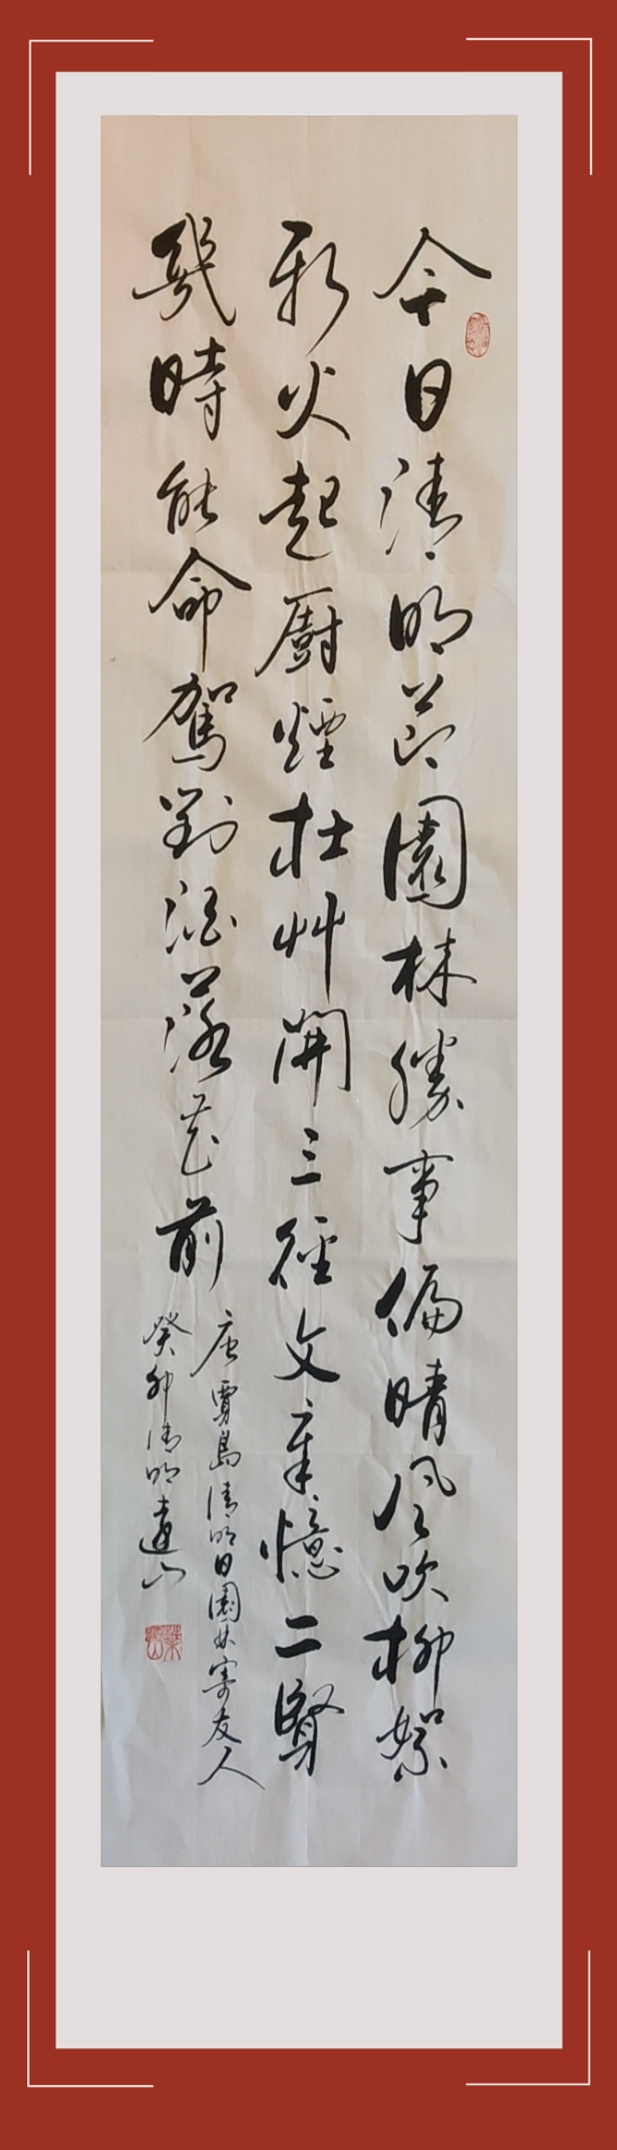 今日清明節園林勝事偏晴風吹柳絮
新火起廚煙杜艸開三徑文章憶二賢
幾時能命駕對酒落花前
唐賈島清明日園林寄友人
癸卯清明